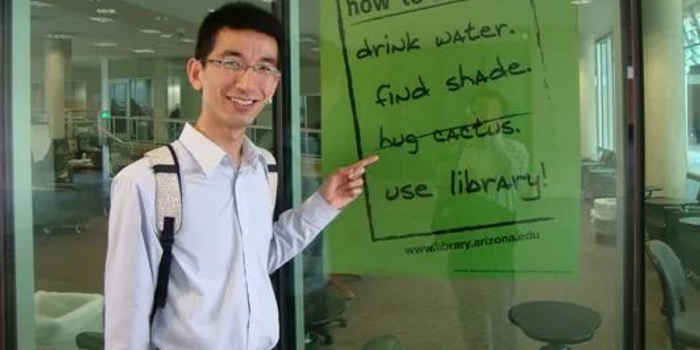 how to
drink water.
find shade.
hug cactus.
use library!
www.library.arizona.edu